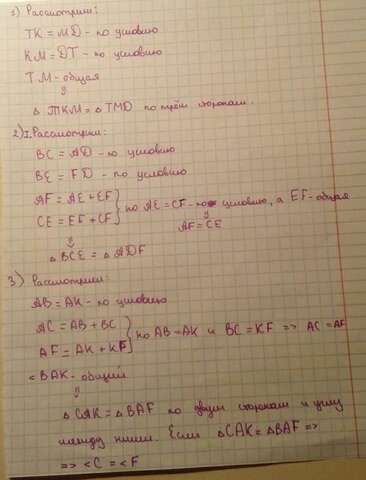 1) Рассмотрим:
TK = MD - по условию
KM = DT - по условию
TM - общая
⇓
△ TKM = △ TMD по трём сторонам.
2) I. Рассмотрим:
BC = AD - по условию
BE = FD - по условию
AF = AE + EF
CE = EF + CF } но AE = CF - по условию, а EF - общая
⇓
AF = CE
⇓
△ BCE = △ ADF
3) Рассмотрим:
AB = AK - по условию
AC = AB + BC
AF = AK + KF } но AB = AK и BC = KF => AC = AF
< BAK - общий
⇓
△ CAK = △ BAF по двум сторонам и углу
между ними. Если △ CAK = △ BAF =>
=> < C = < F